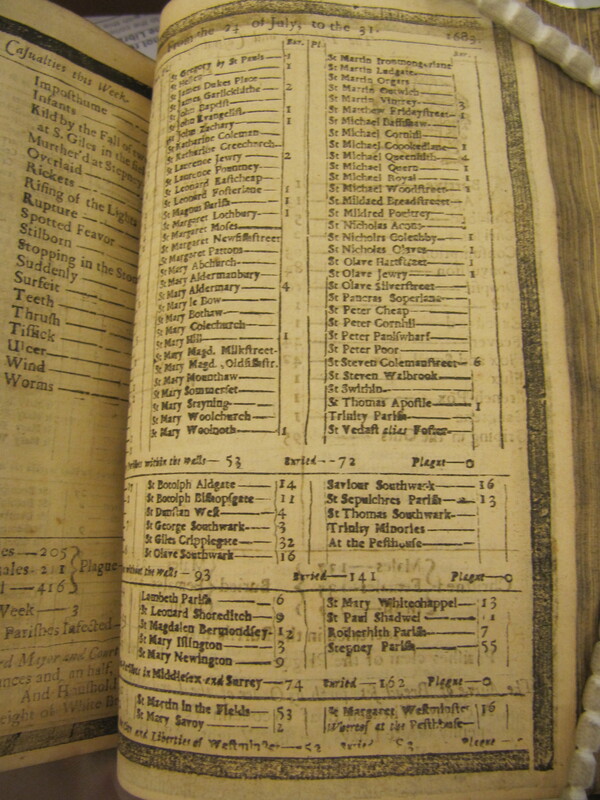 Casualties this Week.
Imposthume
Infants
Kild by the Fall of
at S. Giles in the
Murther'd at Stepney
Overlaid
Rickets
Rising of the Lights
Rupture
Spotted Feavor
Stilborn
Stopping in the Stom
Suddenly
Surfeit
Teeth
Thrush
Tissick
Ulcer
Wind
Worms
205
Plague
416
Week — 3
Parishes Infected
Lord Mayor and Court
and an half,
And Houshold
weight of White
From the 24 of July, to the 31. 1683.
Bur. Pl.
St Gregory by St Pauls
St James Dukes Place
St James Garlickhithe — 2
St John Baptist — 1
St John Evangelist — 1
St John Zachary
St Katharine Coleman
St Katharine Creechurch
St Laurence Jewry — 2
St Laurence Pountney
St Leonard Eastcheap
St Leonard Fosterlane — 1
St Magnus Parish — 1
St Margaret Lothbury — 1
St Margaret Moses
St Margaret Newfishstreet
St Margaret Pattons
St Mary Abchurch
St Mary Aldermanbury
St Mary Aldermary — 4
St Mary le Bow
St Mary Bothaw
St Mary Colechurch
St Mary Hill — 1
St Mary Magd. Milkstreet
St Mary Magd. Oldfishstr.
St Mary Mounthaw
St Mary Sommerset
St Mary Stayning
St Mary Woolchurch
St Mary Woolnoth — 1
St Martin Ironmongerlane
St Martin Ludgate
St Martin Orgars
St Martin Outwich
St Martin Vintrey — 3
St Matthew Fridaystreet — 1
St Michael Bassishaw
St Michael Cornhil
St Michael Crookedlane — 1
St Michael Queenhith — 4
St Michael Quern — 1
St Michael Royal — 1
St Michael Woodstreet — 1
St Mildred Breadstreet
St Mildred Poultrey
St Nicholas Acons
St Nicholas Coleabby — 1
St Nicholas Olaves — 1
St Olave Hartstreet — 1
St Olave Jewry — 1
St Olave Silverstreet
St Pancras Soperlane
St Peter Cheap
St Peter Cornhil
St Peter Paulswharf
St Peter Poor
St Steven Colemanstreet — 6
St Steven Walbrook
St Swithin
St Thomas Apostle — 1
Trinity Parish
St Vedast alias Foster
within the Walls — 53 Buried — 72 Plague — 0
St Botolph Aldgate — 14
St Botolph Bishopsgate — 11
St Dunstan West — 4
St George Southwark — 3
St Giles Cripplegate — 32
St Olave Southwark — 16
Saviour Southwark — 16
St Sepulchres Parish — 13
St Thomas Southwark
Trinity Minories
At the Pesthouse
without the Walls — 93 Buried — 141 Plague — 0
Lambeth Parish — 6
St Leonard Shoreditch — 9
St Magdalen Bermondsey — 12
St Mary Islington — 3
St Mary Newington — 9
St Mary Whitechappel — 13
St Paul Shadwel — 1
Rotherhith Parish — 7
Stepney Parish — 55
in Middlesex and Surrey — 74 Buried — 162 Plague — 0
St Martin in the Fields — 53
St Mary Savoy — 2
St Margaret Westminster — 16
Whereof at the Pesthouse
and Liberties of Westminster — 53 Buried Plague